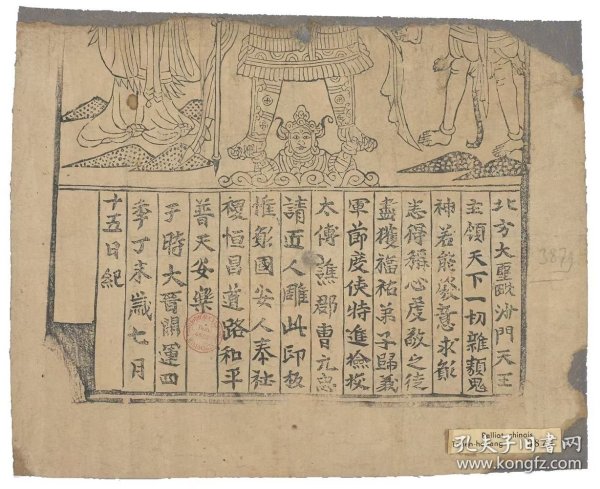 北方大聖毗沙門天王
主領天下一切雜類鬼
神若能發意求願
悉得稱心虔敬之徒
盡獲福祐弟子歸義
軍節度使特進檢校
太傅譙郡曹元忠
請匠人雕此印板
惟願國安人泰社
稷恒昌道路和平
普天安樂
于時大晉開運四
年丁未歲七月
十五日紀
Pelliot chinois
孔夫子旧书网
www.kongfz.com